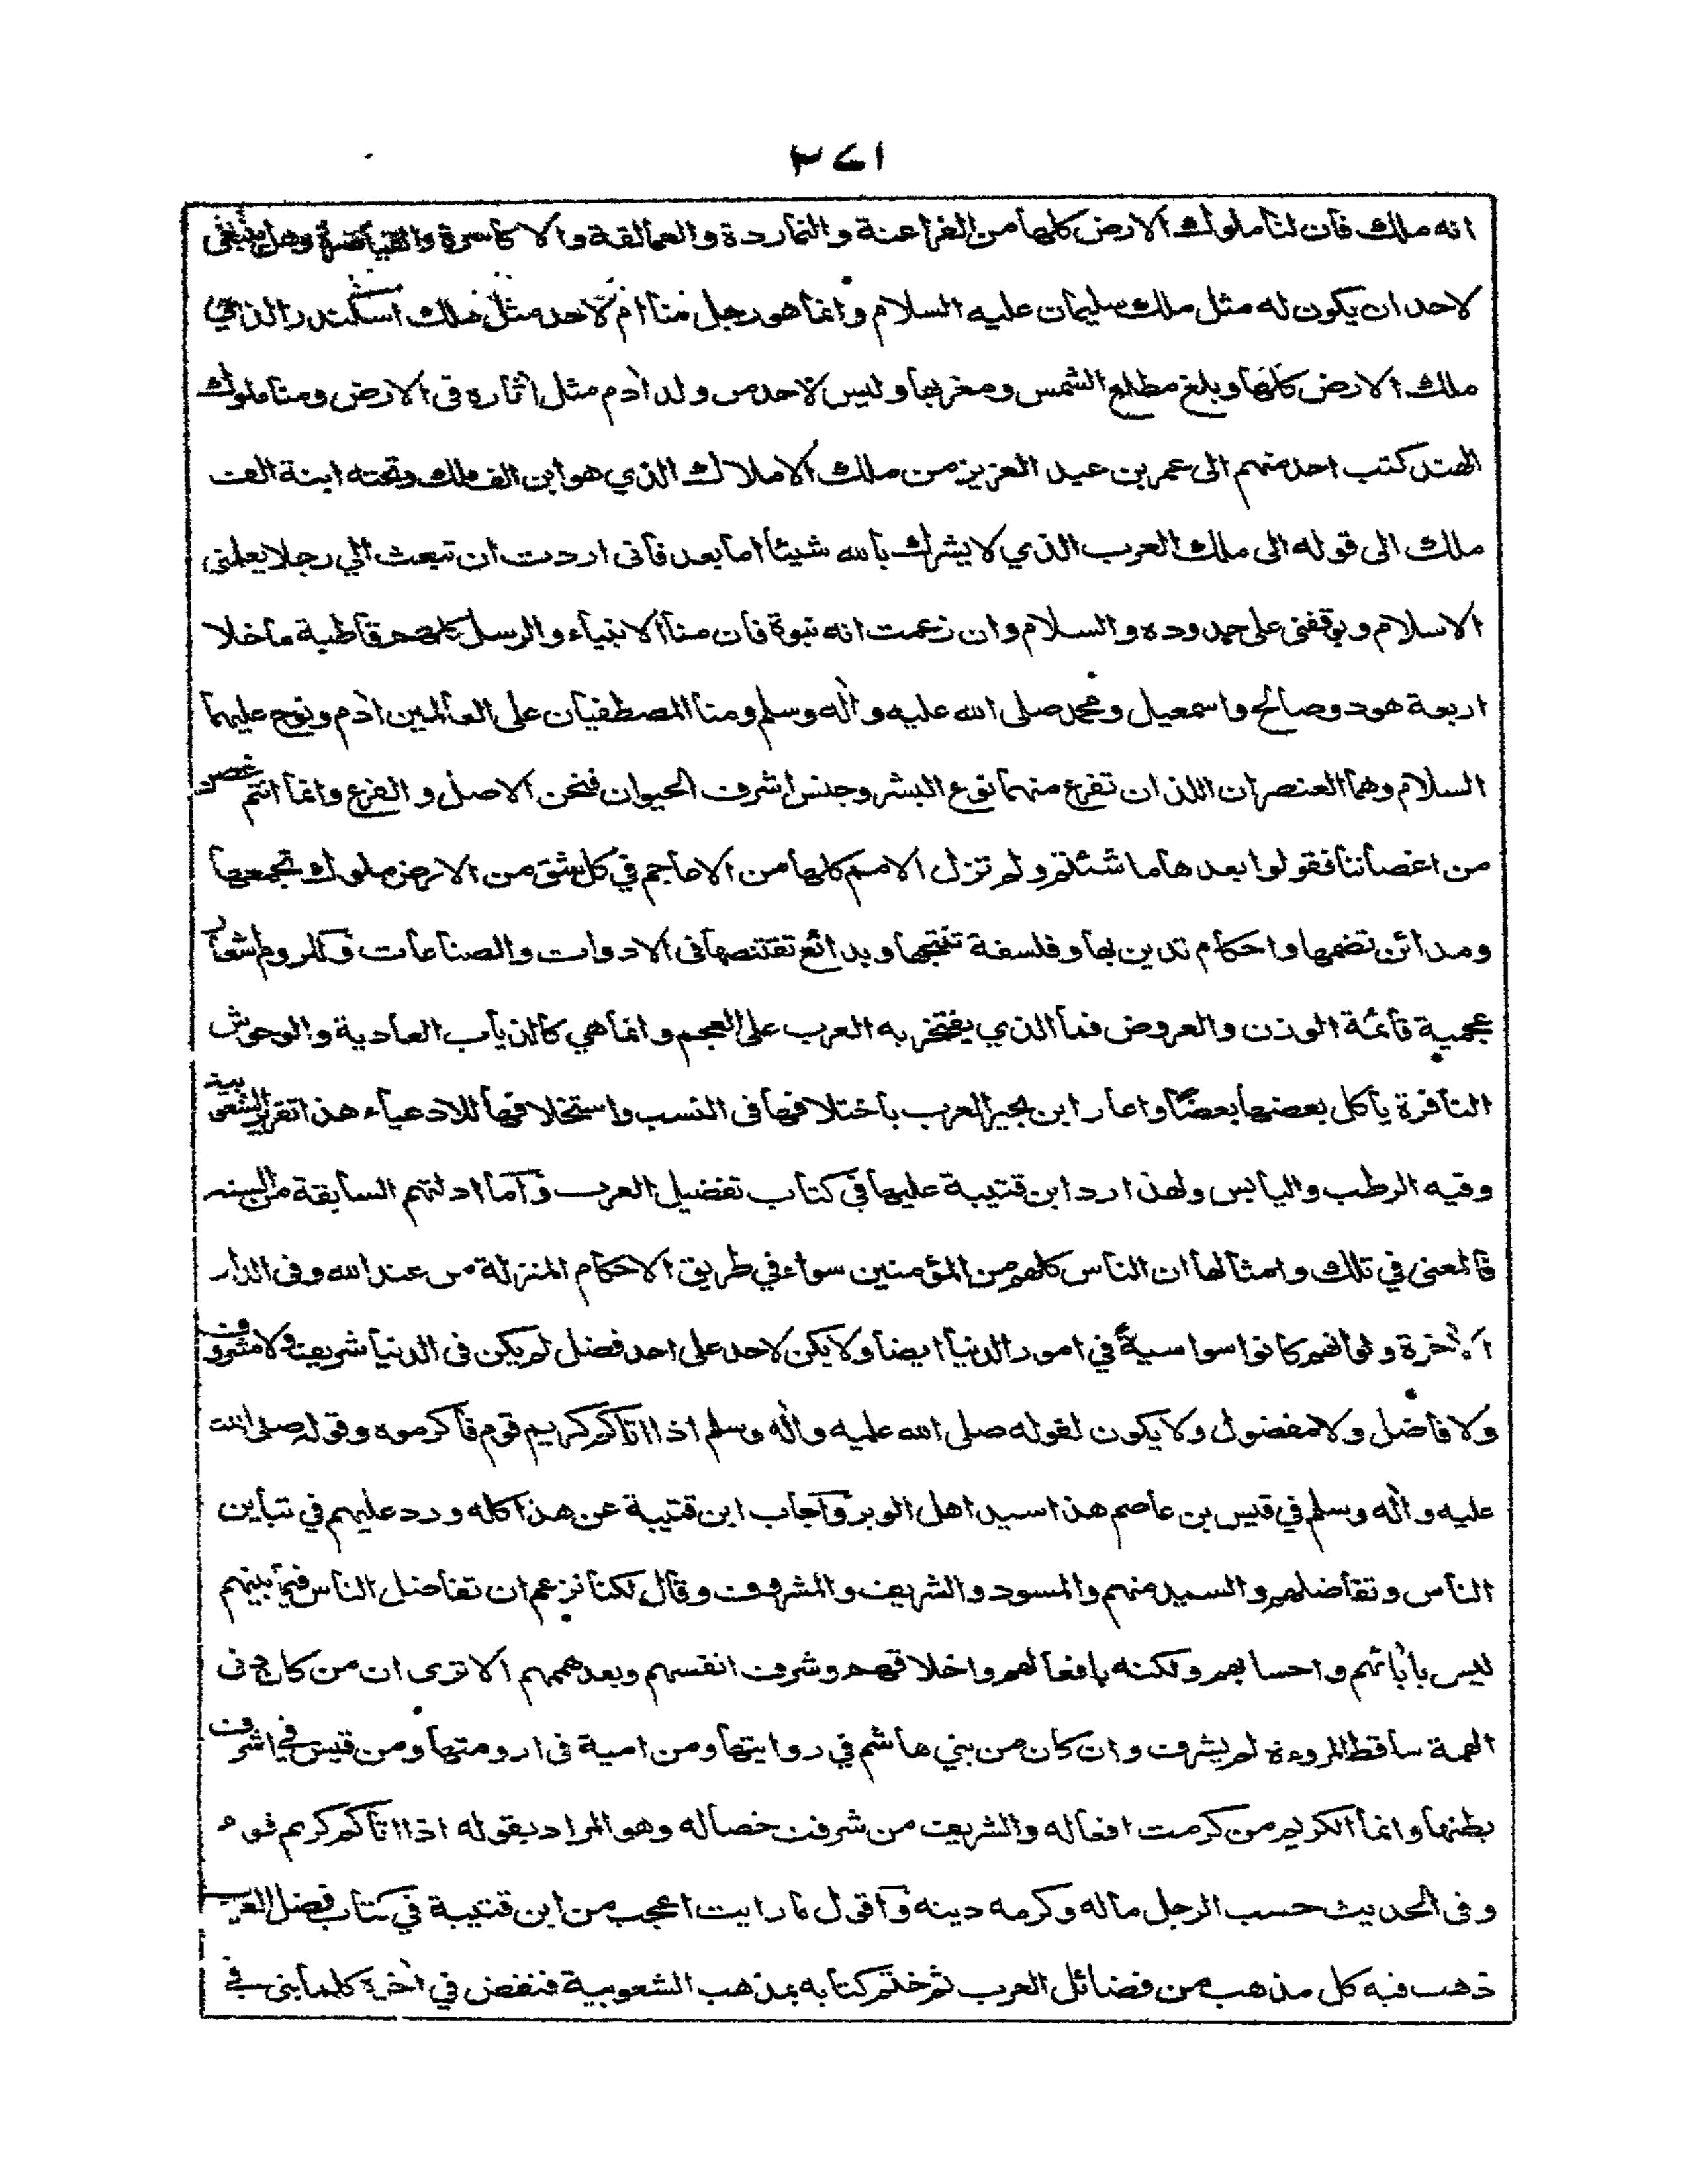 ٢٧١
انه ملك فأن لنا ملوك الارض كلها من الفراعنة والنماردة والعمالقة والاكاسرة والقياصرة وهل ينبغى
لاحد ان يكون له مثل ملك سليمان عليه السلام وانما هو رجل منا ام لاحد مثل ملك اسكندر الذي
ملك الارض كلها وبلغ مطلع الشمس ومغربها وليس لاحد من ولد أدم مثل أثاره فى الارض ومنا ملوك
الهند كتب احد منهم الى عمر بن عبد العزيز من ملك الاملاك الذي هو ابن الف ملك وتحته ابنة الف
ملك الى قوله الى ملك العرب الذي لا يشرك بالله شيئا اما بعد فأنى اردت ان تبعث الي رجلا يعلمنى
الاسلام ويوقفنى على حدوده والسلام وان زعمت انه نبوة فأن منا الانبياء والرسل كلهم قاطبة ما خلا
اربعة هود وصالح واسمعيل ومحمد صلى الله عليه وأله وسلم ومنا المصطفيان على العالمين أدم ونوح عليهما
السلام وهما العنصران اللذان تفرع منهما نوع البشر وجنس اشرف الحيوان فنحن الاصل والفرع وانما انتم غصن
من اغصاننا فقولوا بعد هذا ما شئتم ولم تزل الامم كلها من الاعاجم في كل شق من الارض ملوك تجمعها
ومدائن تضمها واحكام تدين بها وفلسفة تنتجها وبدائع تقتنصها فى الادوات والصناعات وللروم اشعار
عجمية قائمة الوزن والعروض فما الذي يفتخر به العرب على العجم وانما هي كالذياب العادية والوحوش
النافرة يأكل بعضها بعضًا واعار ابن بجير العرب باختلافها فى النسب واستخلافها للادعياء هذا تقرير الشعوبية
وفيه الرطب واليابس ولهذا رد ابن قتيبة عليها في كتاب تفضيل العرب وأما ادلتهم السابقة من السنه
فالمعنى في تلك وامثالها ان الناس كلهم من المؤمنين سواء في طريق الاحكام المنزلة من عند الله وفى الدار
الأخرة ولو انهم كانوا سواسيةً في امور الدنيا ايضا ولا يكن لاحد على احد فضل لم يكن فى الدنيا شريف ولا مشروف
ولا فاضل ولا مفضول ولا يكون لقوله صلى الله عليه وأله وسلم اذا اتاكم كريم قوم فأكرموه وقوله صلى الله
عليه وأله وسلم في قيس بن عاصم هذا سيد اهل الوبر وأجاب ابن قتيبة عن هذا كله ورد عليهم في تباين
الناس وتفاضلهم والسيد منهم والمسود والشريف والمشروف وقال لكنا نزعم ان تفاضل الناس فيما بينهم
ليس بأبائهم واحسابهم ولكنه بافعالهم واخلاقهم وشرف انفسهم وبعد هممهم الا ترى ان من كان دنى
الهمة ساقط المروءة لم يشرف وان كان من بني هاشم في روايتها ومن امية فى ارومتها ومن قيس في اشرف
بطنها وانما الكريم من كرمت افعاله والشريف من شرفت خصاله وهو المراد بقوله اذا اتاكم كريم قوم
وفى الحديث حسب الرجل ماله وكرمه دينه وأقول ما رايت اعجب من ابن قتيبة في كتاب فضل العرب
ذهب فيه كل مذهب من فضائل العرب ثم ختم كتابه بمذهب الشعوبية فنقض في أخره كلما بنى في